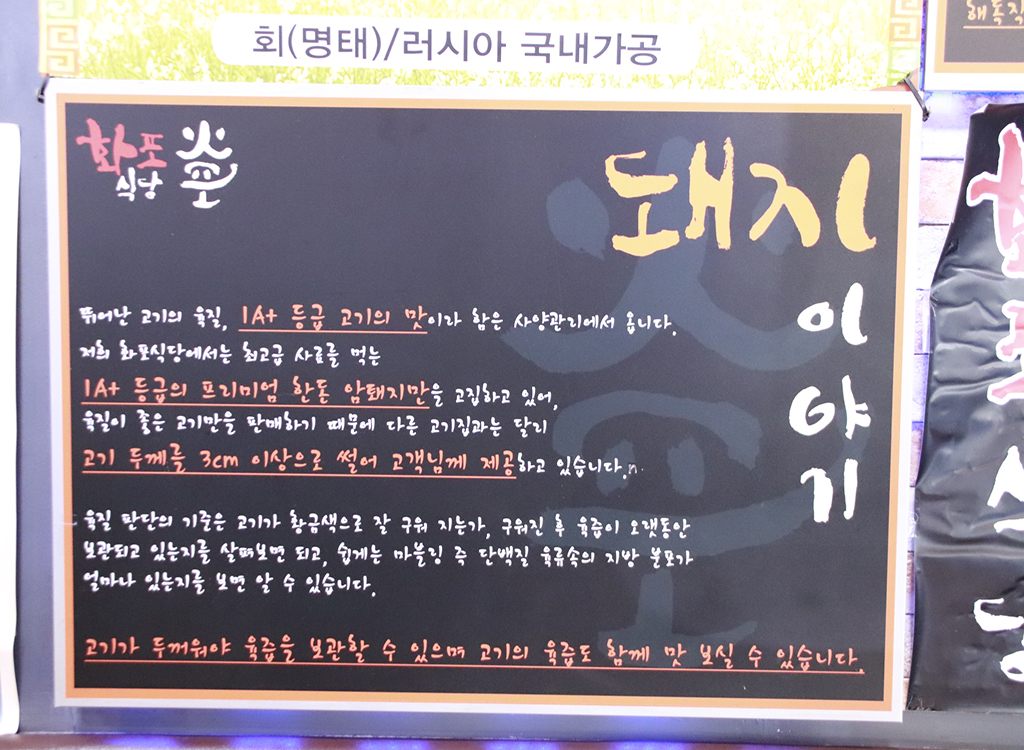 회(명태)/러시아 국내가공
해독작
화포
식당
돼지
이야기
뛰어난 고기의 육질, 1A+ 등급 고기의 맛이라 함은 사양관리에서 옵니다.
저희 화포식당에서는 최고급 사료를 먹는
1A+ 등급의 프리미엄 한돈 암퇘지만을 고집하고 있어,
육질이 좋은 고기만을 판매하기 때문에 다른 고기집과는 달리
고기 두께를 3cm 이상으로 썰어 고객님께 제공하고 있습니다.n.
육질 판단의 기준은 고기가 황금색으로 잘 구워 지는가, 구워진 후 육즙이 오랫동안
보관되고 있는지를 살펴보면 되고, 쉽게는 마블링 즉 단백질 육류속의 지방 분포가
얼마나 있는지를 보면 알 수 있습니다.
고기가 두꺼워야 육즙을 보관할 수 있으며 고기의 육즙도 함께 맛 보실 수 있습니다.